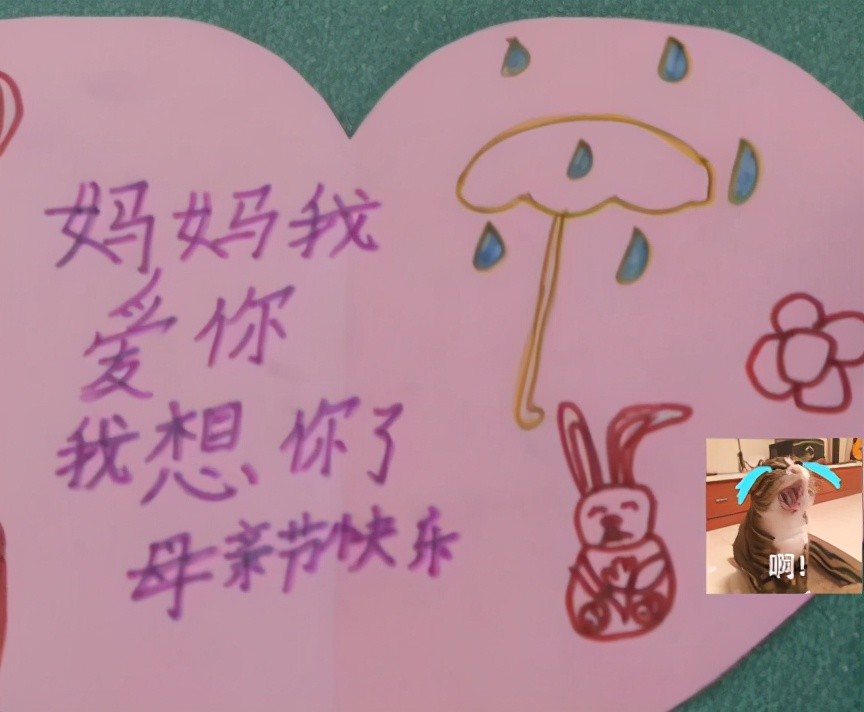 妈妈我
爱你
我想你了
母亲节快乐
啊!